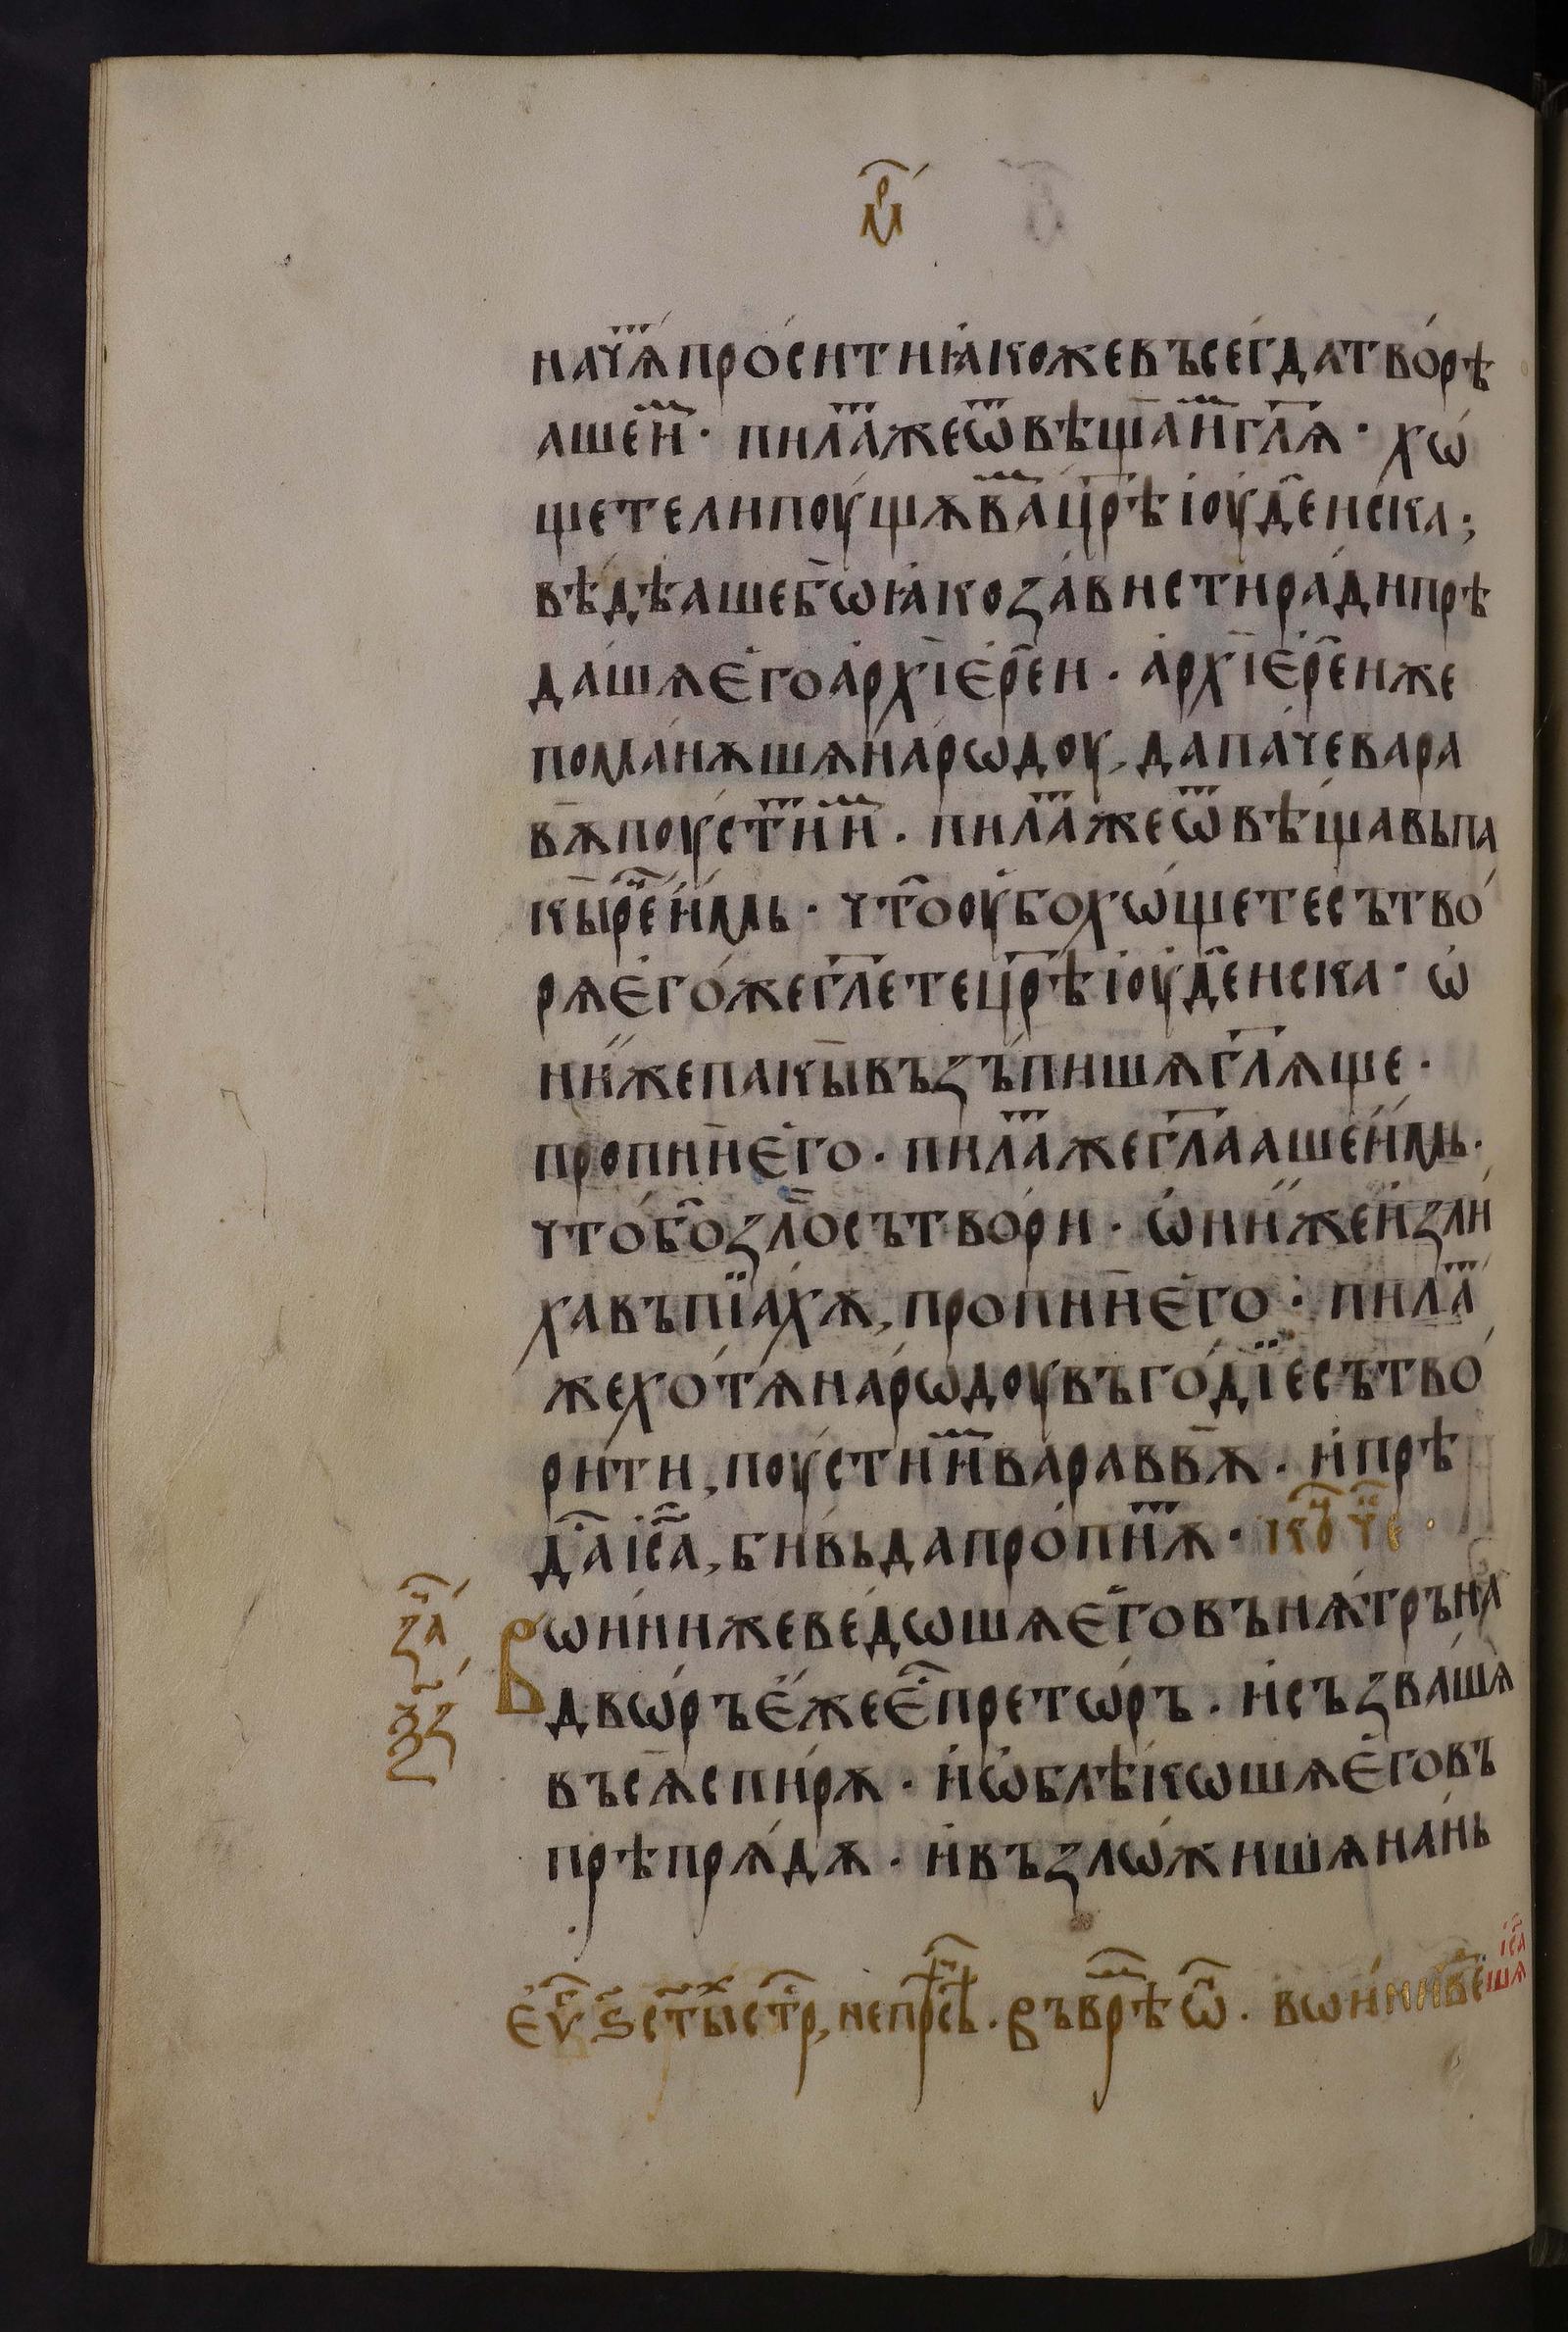 мр҃
начѧ̀ проси́ти ꙗ҆́коже въсегда̀ творѣ́
аше и҆̀м. пила́т же ѿвѣща̀ и҆̀м гл҃ѧ. хѡ́
щете ли поущѫ̀ ва̀м цр҃ѣ і҆оуде́йска;
вѣ́дѣаше бѡ ꙗ҆́ко за́висти ра́ди прѣ
да́шѧ є҆го̀ а҆рхїєре́и. а҆рхїєре́и же
пома́нѫшѧ наро́дѡу, да па́че вара
вѫ̀ поу́стит и҆̀м. пила́т же ѿвѣща́вь па
кы̀ рече и҆́мь. что̀ оубо хѡ́щете сътво́
рѧ є҆го́же гл҃ете цр҃ѣ і҆оуде́йска. ѡ҆
ни́ же пакы̀ възъпи́шѧ гл҃ѧще.
пропнѝ є҆го̀. пила́т же гл҃ааше и҆́мь.
что́ бо зло̀ сътворѝ. ѡ҆ни́ же и҆́зли
ха въпїа́хѫ, пропнѝ є҆го̀. пила́т
же хотѧ̀ наро́дѡу въгѡ́дїе сътво
ри́ти, поустѝ и҆̀м вара́ввѫ. и҆ прѣ
да̀ і҆с҃а, би́вь да про́пнѫт. коне́ч.
за҃ ѯ҃з
Вѡи́ни же ведѡ́шѧ є҆го̀ вънѫ́трь на
двѡ́ръ є҆́же є҆́ст претѡ́ръ. и҆ съзва́шѧ
въсѫ̀ спи́рѫ. и҆ ѡ҆блѣкѡ́шѧ є҆го̀ въ
прѣпрѫ́дѫ. и҆ възлѡжи́шѧ на́нь
Єѵ҃ ѕ҃ ст҃ы́х стр҃, и непр҃сѣ. Въ врѣ ѡ҆́н. вѡи́ни ве
і҆с҃а
шѧ